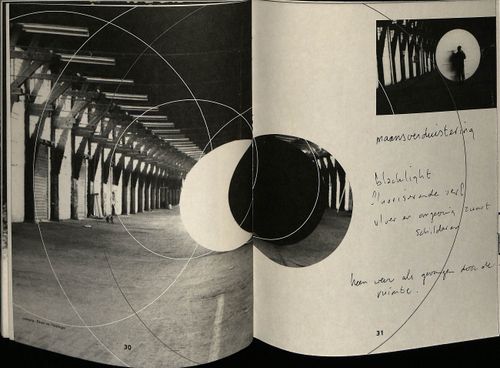 30
maansverduistering
blacklight
fluoriserende verf
vloer en omgeving zwart
schilderen
heen weer als
door de
ruimte.
31